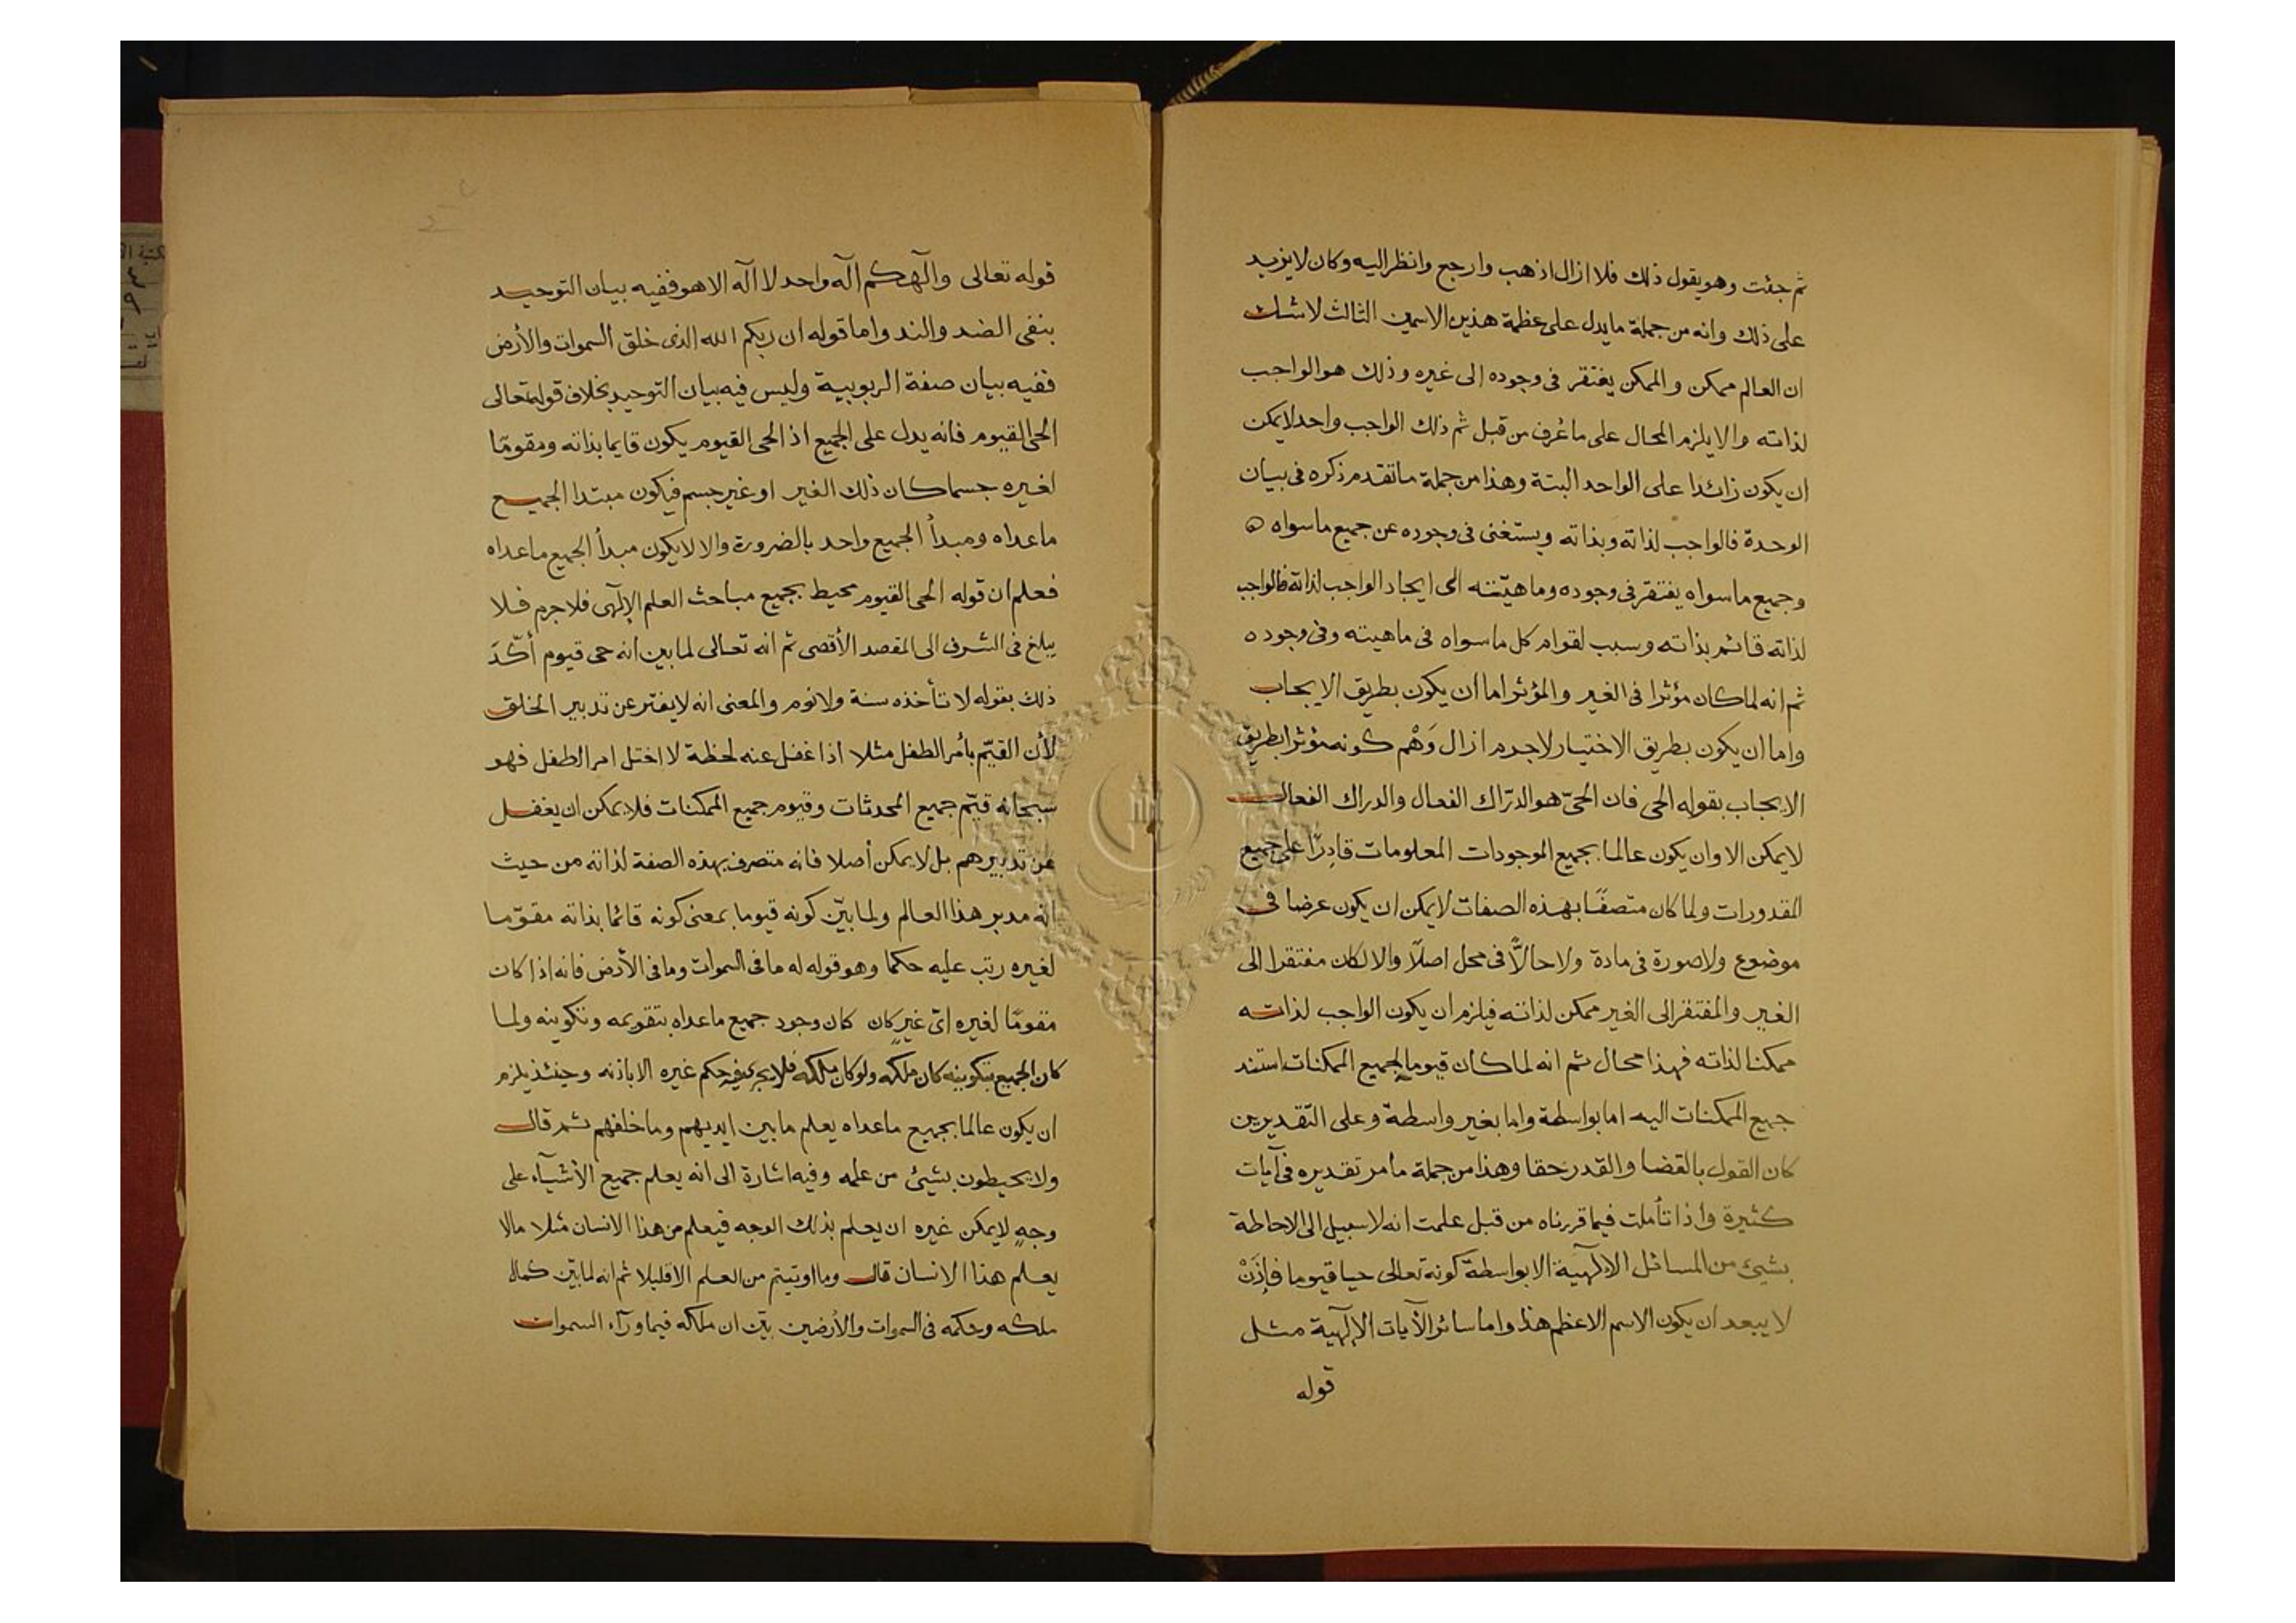 ثم جئت وهو يقول ذلك فلا ازال اذهب وارجع وانظر اليه وكان لا يزيد
على ذلك وانه من جملة ما يدل على عظمة هذين الاسمين الثالث لا شك
ان العالم ممكن والممكن يفتقر فى وجوده الى غيره وذلك هو الواجب
لذاته والا يلزم المحال على ما عُرف من قبل ثم ذلك الواجب واحد لا يمكن
ان يكون زائدا على الواحد البتة وهذا من جملة ما تقدم ذكره فى بيان
الوحدة فالواجب لذاته وبذاته ويستغنى فى وجوده عن جميع ما سواه ه
وجميع ما سواه يفتقر فى وجوده وماهيّته الى ايجاد الواجب لذاته فالواجب
لذاته قائم بذاته وسبب لقوام كل ما سواه فى ماهيته وفى وجوده
ثم انه لما كان مؤثرا فى الغير والمؤثر اما ان يكون بطريق الايجاب
واما ان يكون بطريق الاختيار لاجرم ازال وَهْم كونه مؤثرا بطريق
الايجاب بقوله الحى فان الحىّ هو الدرّاك الفعال والدراك الفعال
لا يمكن الا وان يكون عالما بجميع الموجودات المعلومات قادِرًا على جميع
المقدورات ولما كان متصفًا بهذه الصفات لا يمكن ان يكون عرضا فى
موضوع ولا صورة فى مادة ولا حالاًّ فى محل اصلاً والا لكان مفتقرا الى
الغير والمفتقر الى الغير ممكن لذاته فيلزم ان يكون الواجب لذاته
ممكنا لذاته فهذا محال ثم انه لما كان قيوما لجميع الممكنات استند
جميع الممكنات اليه اما بواسطة واما بغير واسطة وعلى التقديرين
كان القول بالقضا والقدر حقا وهذا من جملة ما مر تقديره فى آيات
كثيرة واذا تأملت فيما قررناه من قبل علمت انه لا سبيل الى الاحاطة
بشيئ من المسائل الالهية الا بواسطة كونه تعالى حيا قيوما فإذَنْ
لا يبعد ان يكون الاسم الاعظم هذا واما سائر الآيات الإلهية مثل
قوله
قوله تعالى والٓهكم اله واحد لا اله الا هو ففيه بيان التوحيد
بنفى الضد والند واما قوله ان ربكم الله الذى خلق السموات والأرض
ففيه بيان صفة الربوبية وليس فيه بيان التوحيد بخلاف قوله تعالى
الحى القيوم فانه يدل على الجميع اذ الحى القيوم يكون قايما بذاته ومقومًا
لغيره جسما كان ذلك الغير او غير جسم فيكون مبتدا لجميع
ما عداه ومبدأ الجميع واحد بالضرورة والا لا يكون مبدأ لجميع ما عداه
فعلم ان قوله الحى القيوم محيط بجميع مباحث العلم الإلهى فلاجرم فلا
يبلغ فى الشرف الى المقصد الأقصى ثم انه تعالى لما بين انه حى قيوم أكّدَ
ذلك بقوله لا تأخذه سنة ولا نوم والمعنى انه لا يفتر عن تدبير الخلق
لأن القيّم بأمر الطفل مثلا اذا غفل عنه لحظة لا اختل امر الطفل فهو
سبحانه قيّم جميع المحدثات وقيوم جميع الممكنات فلا يمكن ان يغفل
عن تدبيرهم بل لا يمكن أصلا فانه متصرف بهذه الصفة لذاته من حيث
انه مدبر هذا العالم ولما بيّن كونه قيوما بمعنى كونه قائما بذاته مقوّما
لغيره رتب عليه حكما وهو قوله له ما فى السموات وما فى الأرض فانه اذا كان
مقومًا لغيره اىّ غيرٍ كان كان وجود جميع ما عداه بتقويمه وتكوينه ولما
كان الجميع بتكوينه كان ملكه ولو كان ملكه فلا يجرى فيه حكم غيره الا باذنه وحينئذ يلزم
ان يكون عالما بجميع ما عداه يعلم ما بين ايديهم وما خلفهم ثم قال
ولا يحيطون بشيئ من علمه وفيه اشارة الى انه يعلم جميع الأشيآء على
وجهٍ لا يمكن غيره ان يعلم بذلك الوجه فيعلم من هذا الانسان مثلا مالا
يعلم هذا الانسان قال وما اوتيتم من العلم الا قليلا ثم انه لما بيّن كمال
ملكه وحكمه فى السموات والأرضين بيّن ان ملكه فيما ورآء السموات